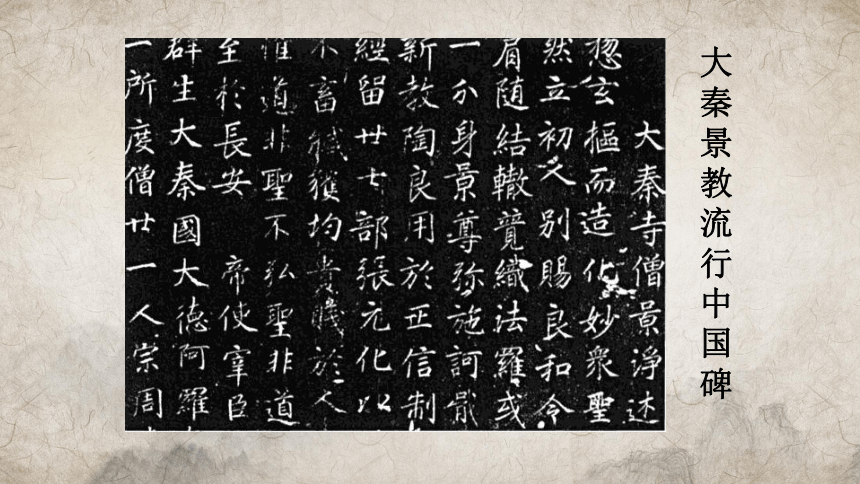 大秦景教流行中国碑
大秦寺僧景淨述
惣玄樞而造化妙衆聖
然立初人别賜良和令
肩随結轍競織法羅或
一分身景尊弥施訶戢
新教陶良用於正信制
經留廿七部張元化以
不畜臧獲均貴賤於人
惟道非聖不弘聖非道
至於長安　帝使宰臣
群生大秦國大德阿羅
一所度僧廿一人宗周